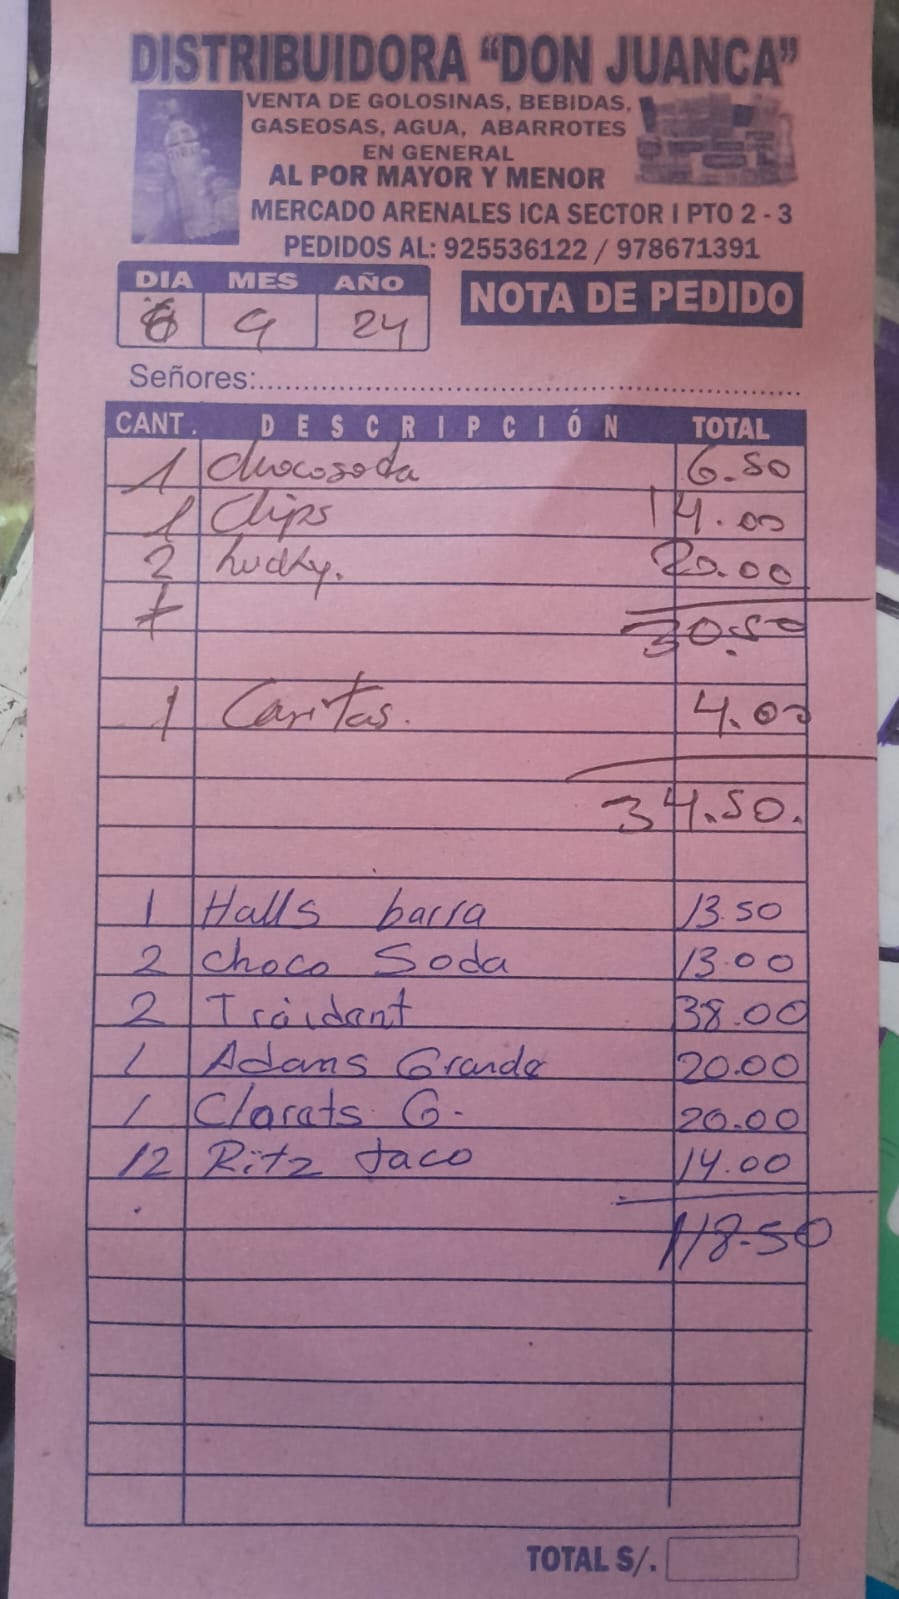 DISTRIBUIDORA "DON JUANCA"
VENTA DE GOLOSINAS, BEBIDAS,
GASEOSAS, AGUA, ABARROTES
EN GENERAL
AL POR MAYOR Y MENOR
MERCADO ARENALES ICA SECTOR I PTO 2 - 3
PEDIDOS AL: 925536122 / 978671391
DIA MES AÑO
6 9 24
NOTA DE PEDIDO
Señores:
CANT. DESCRIPCIÓN TOTAL
1 Chocosoda 6.50
1 Clips 14.00
2 Lucky. 20.00
30.50
1 Caritas. 4.00
34.50.
1 Halls barra 13.50
2 Choco Soda 13.00
2 Tróidant 38.00
1 Adams Grande 20.00
1 Clorets G. 20.00
12 Ritz taco 14.00
118.50
TOTAL S/.